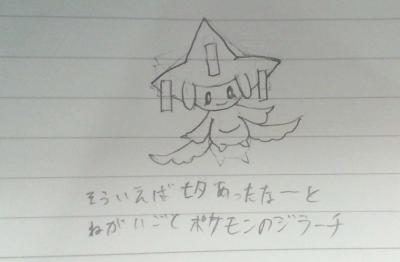 そういえば七夕あったなーと
ねがいごとポケモンのジラーチ